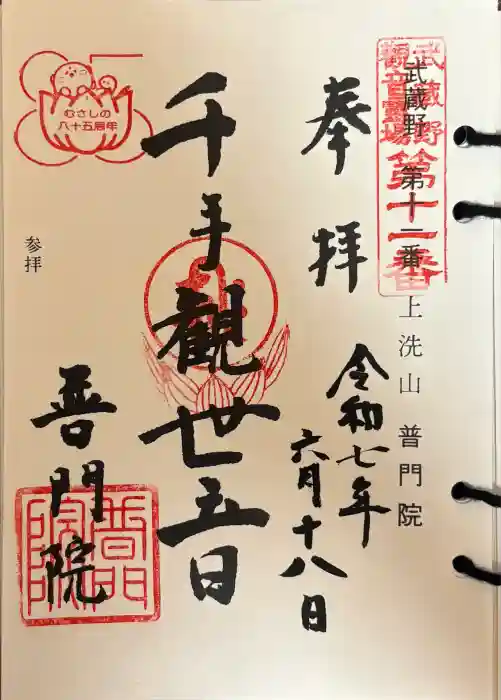 武蔵野
観音霊場
第十一番
武蔵野 第十一番 上洗山 普門院
奉拝
令和七年
六月十八日
千手觀世音
普門院
むさしの
八十五周年
参拝
普門院